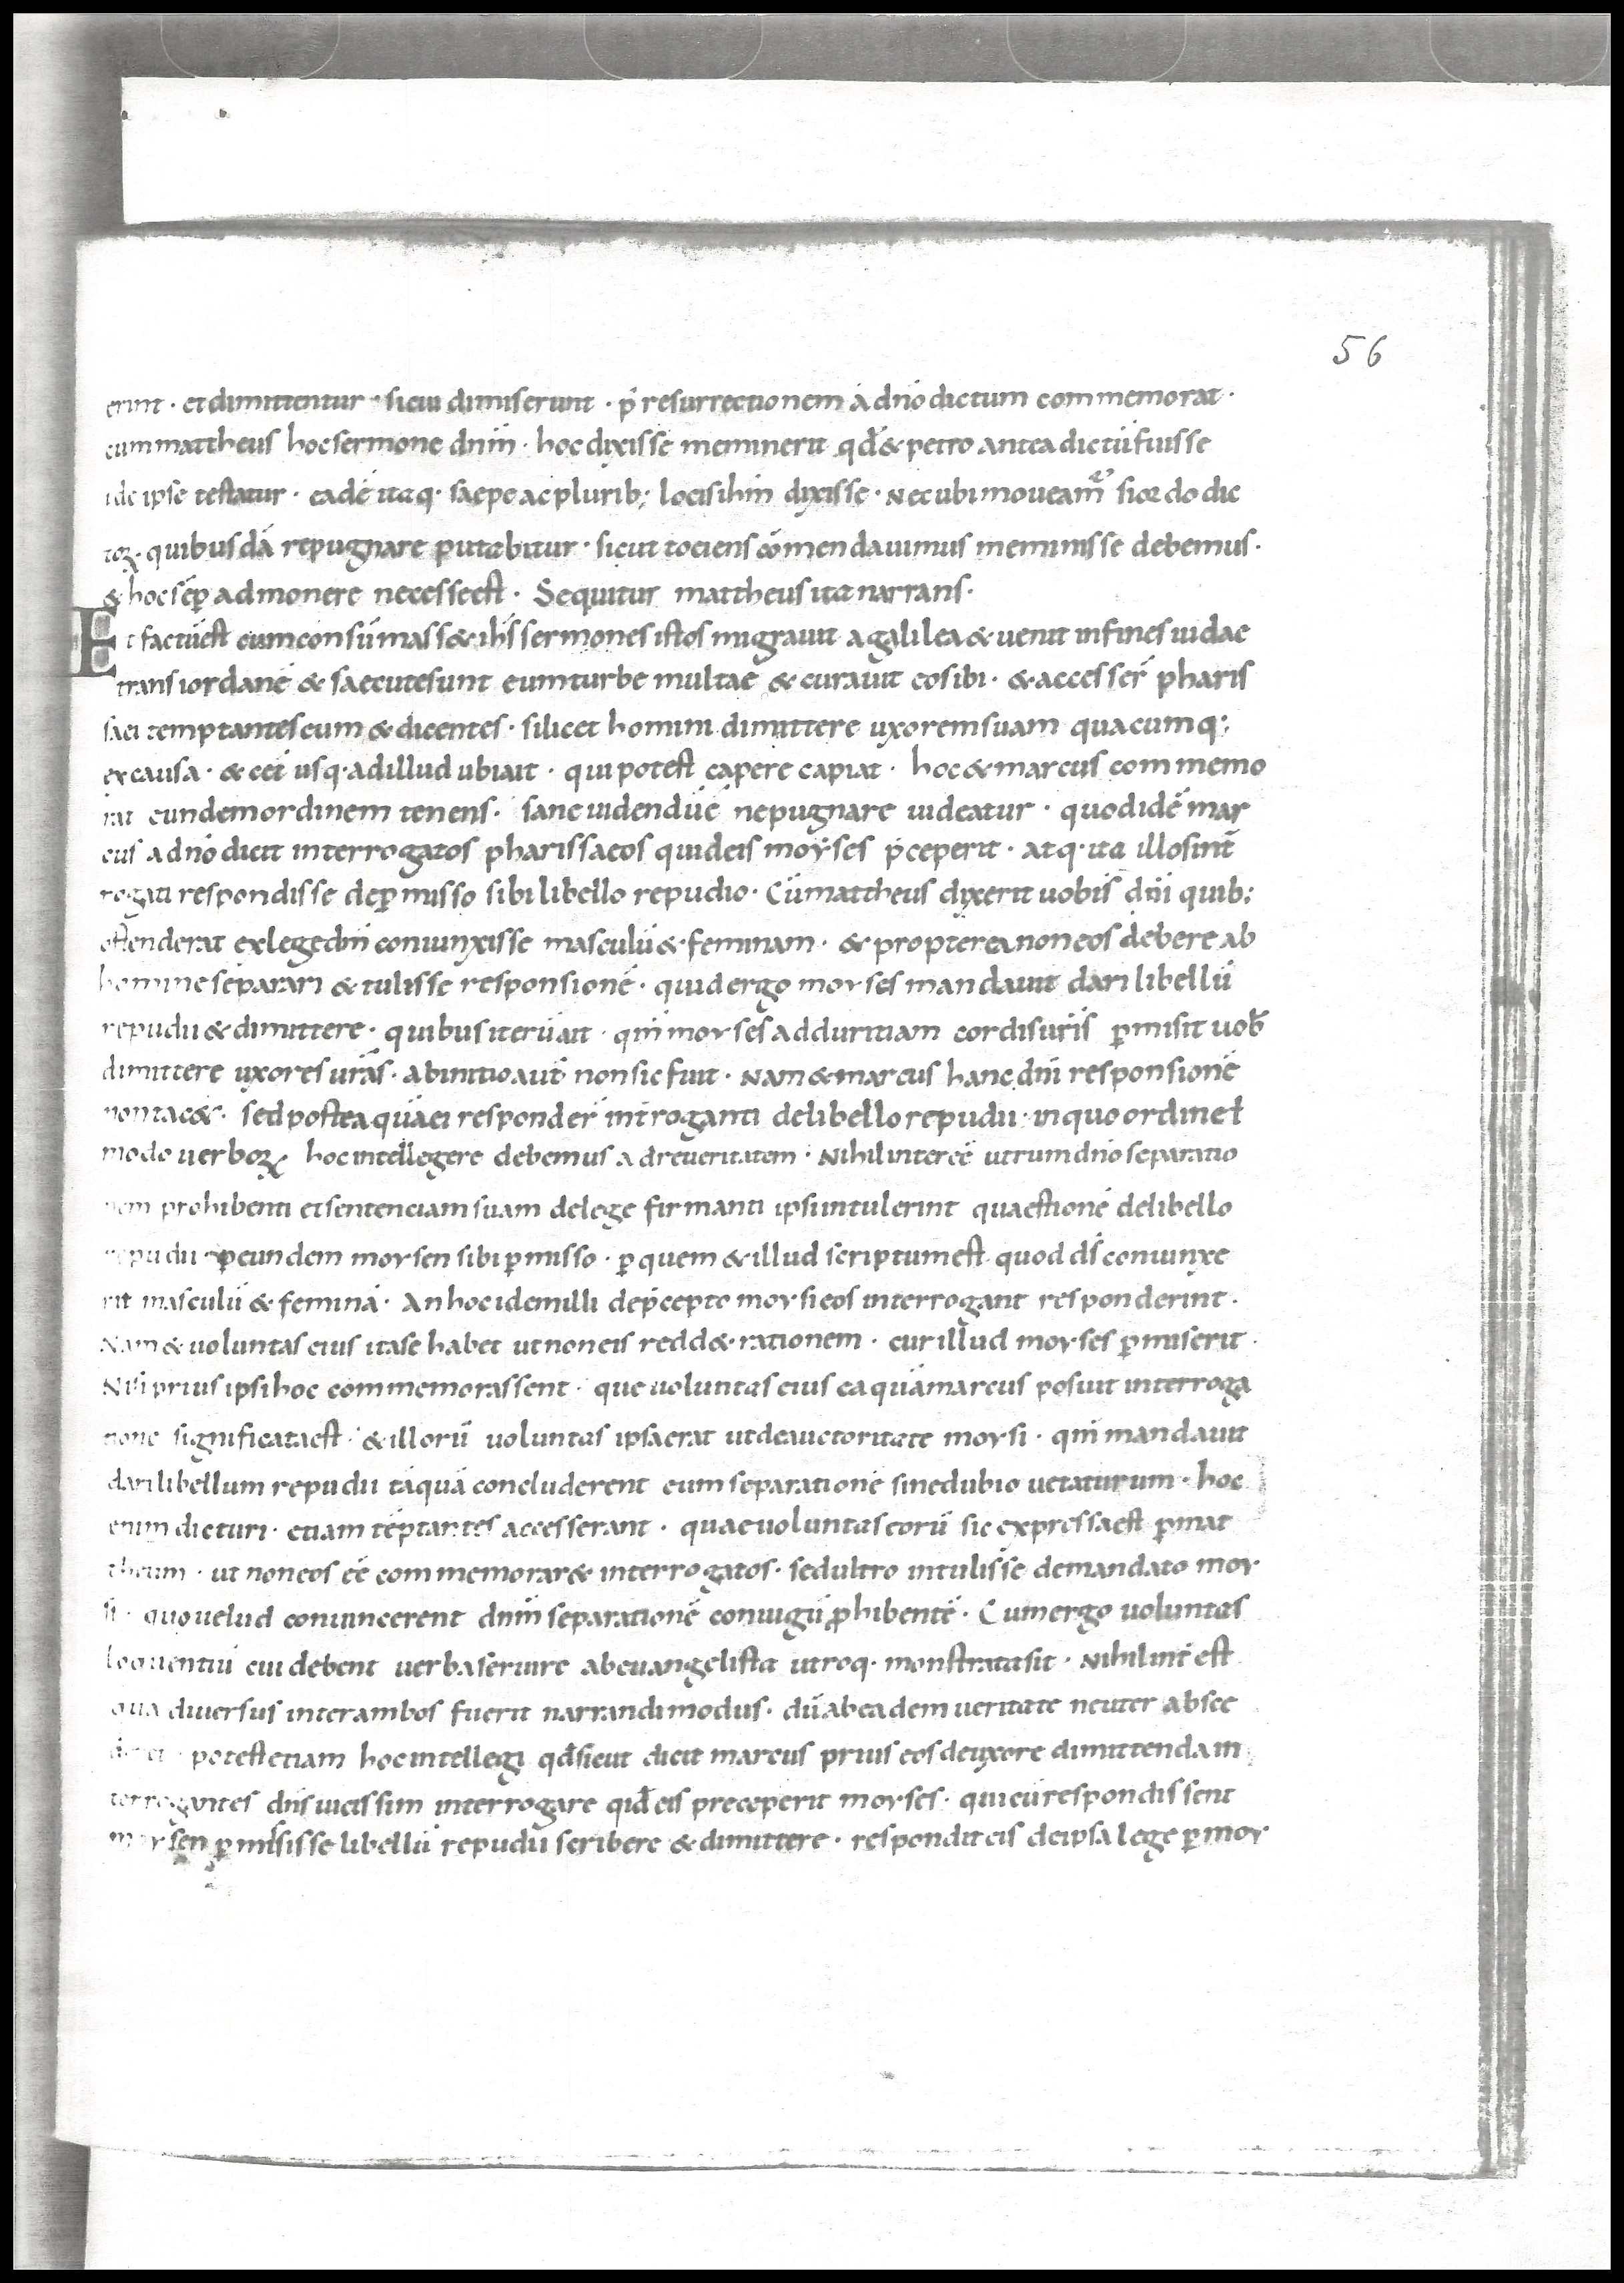 56
erint · et dimittentur · sicui dimiserunt · p̄ resurrectionem á dn̄o dictum commemorat ·
cum mattheus hoc sermone dnm̄ · hoc dixisse meminerit qđ & petro antea dictū fuisse
ide ipse testatur · eadē itaq· saepe ac plurib; locis ihm̄ dixisse · Necubi moueam̄ si ordo dic
toꝝ · quibusdā repugnare putabitur · sicut tociens cōmendauimus meminisse debemus ·
& hoc sēp admonere necesse est · Sequitur mattheus ita narrans ·
Et factū est cum consūmass& ihs̄ sermones istos migrauit a galilea & uenit in fines iudae
trans iordanē & saecute sunt eum turbe multae & curauit eos ibi · & accesser̄ pharis
saei temptantes eum & dicentes · si licet homini dimittere uxorem suam quacumq;
ex causa · & cet̄ usq· ad illud ubi ait · qui potest capere capiat · hoc & marcus commemo
rat eundem ordinem tenens · sane uidendū ē ne pugnare uideatur · quod idē mar
cus a dn̄o dicit interrogatos pharissaeos quid eis moyses p̄ceperit · atq· ita illos int̄
rogati respondisse de ꝑmisso sibi libello repudio · Cū mattheus dixerit uobis dn̄i quib;
ostenderat ex lege dn̄i coniunxisse masculū & feminam · & propterea non eos debere ab
homine separari & tulisse responsionē · quid ergo moyses mandauit dari libellū
repudii & dimittere · quibus iterū ait · qm̄ moyses ad duritiam cordis ur̄is ꝑmisit uob̄
dimittere uxores ur̄as · ab initio aut̄ non sic fuit · Nam & marcus hanc dn̄i responsionē
non tac& · sed postea quā ei responder̄ int̄roganti de libello repudii · in quo ordine ł
modo uerboꝝ hoc intellegere debemus ad rei ueritatem · Nihil inter eē utrum dn̄o separatio
nem prohibenti et sentenciam suam de lege firmanti ipsi intulerint quaestionē de libello
repudii ꝑ eundem moysen sibi ꝑmisso · ꝑ quem & illud scriptum est quod ds̄ coniunxe
rit masculū & feminā · An hoc idem illi de p̄cepto moysi eos interrogant responderint ·
Nam & uoluntas eius ita se habet ut non eis redd& rationem · cur illud moyses ꝑmiserit ·
Nisi prius ipsi hoc commemorassent · que uoluntas eius ea quā marcus posuit interroga
tione significata est · & illorū uoluntas ipsa erat ut de auctoritate moysi · qm̄ mandauit
dari libellum repudii tāquā concluderent eum separationē sine dubio uetaturum · hoc
enim dicturi · etiam tēptantes accesserant · quae uoluntas eorū sic expressa est ꝑ mat
theum · ut non eos eē commemorar& interrogatos · sed ultro intulisse de mandato moy
si · quo uelud conuincerent dnm̄ separationē coniugii ꝓhibentē · Cum ergo uoluntas
loquentiū cui debent uerba seruire ab euangelista utroq· monstrata sit · Nihil int̄ est
qua diuersus inter ambos fuerit narrandi modus · dū ab eadem ueritate neuter absce
potest etiam hoc intellegi qđ sicut dicit marcus prius eos de uxore dimittenda in
terrogantes dn̄s uicissim interrogare qiđ eis preceperit moyses · qui cū respondissent
moysen ꝑmisisse libellū repudii scribere & dimittere · respondit eis de ipsa lege ꝑ moy